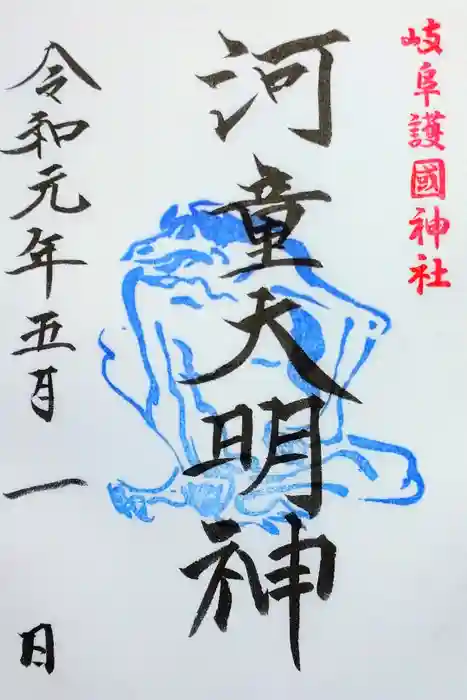 岐阜護國神社
河童大明神
令和元年五月一日